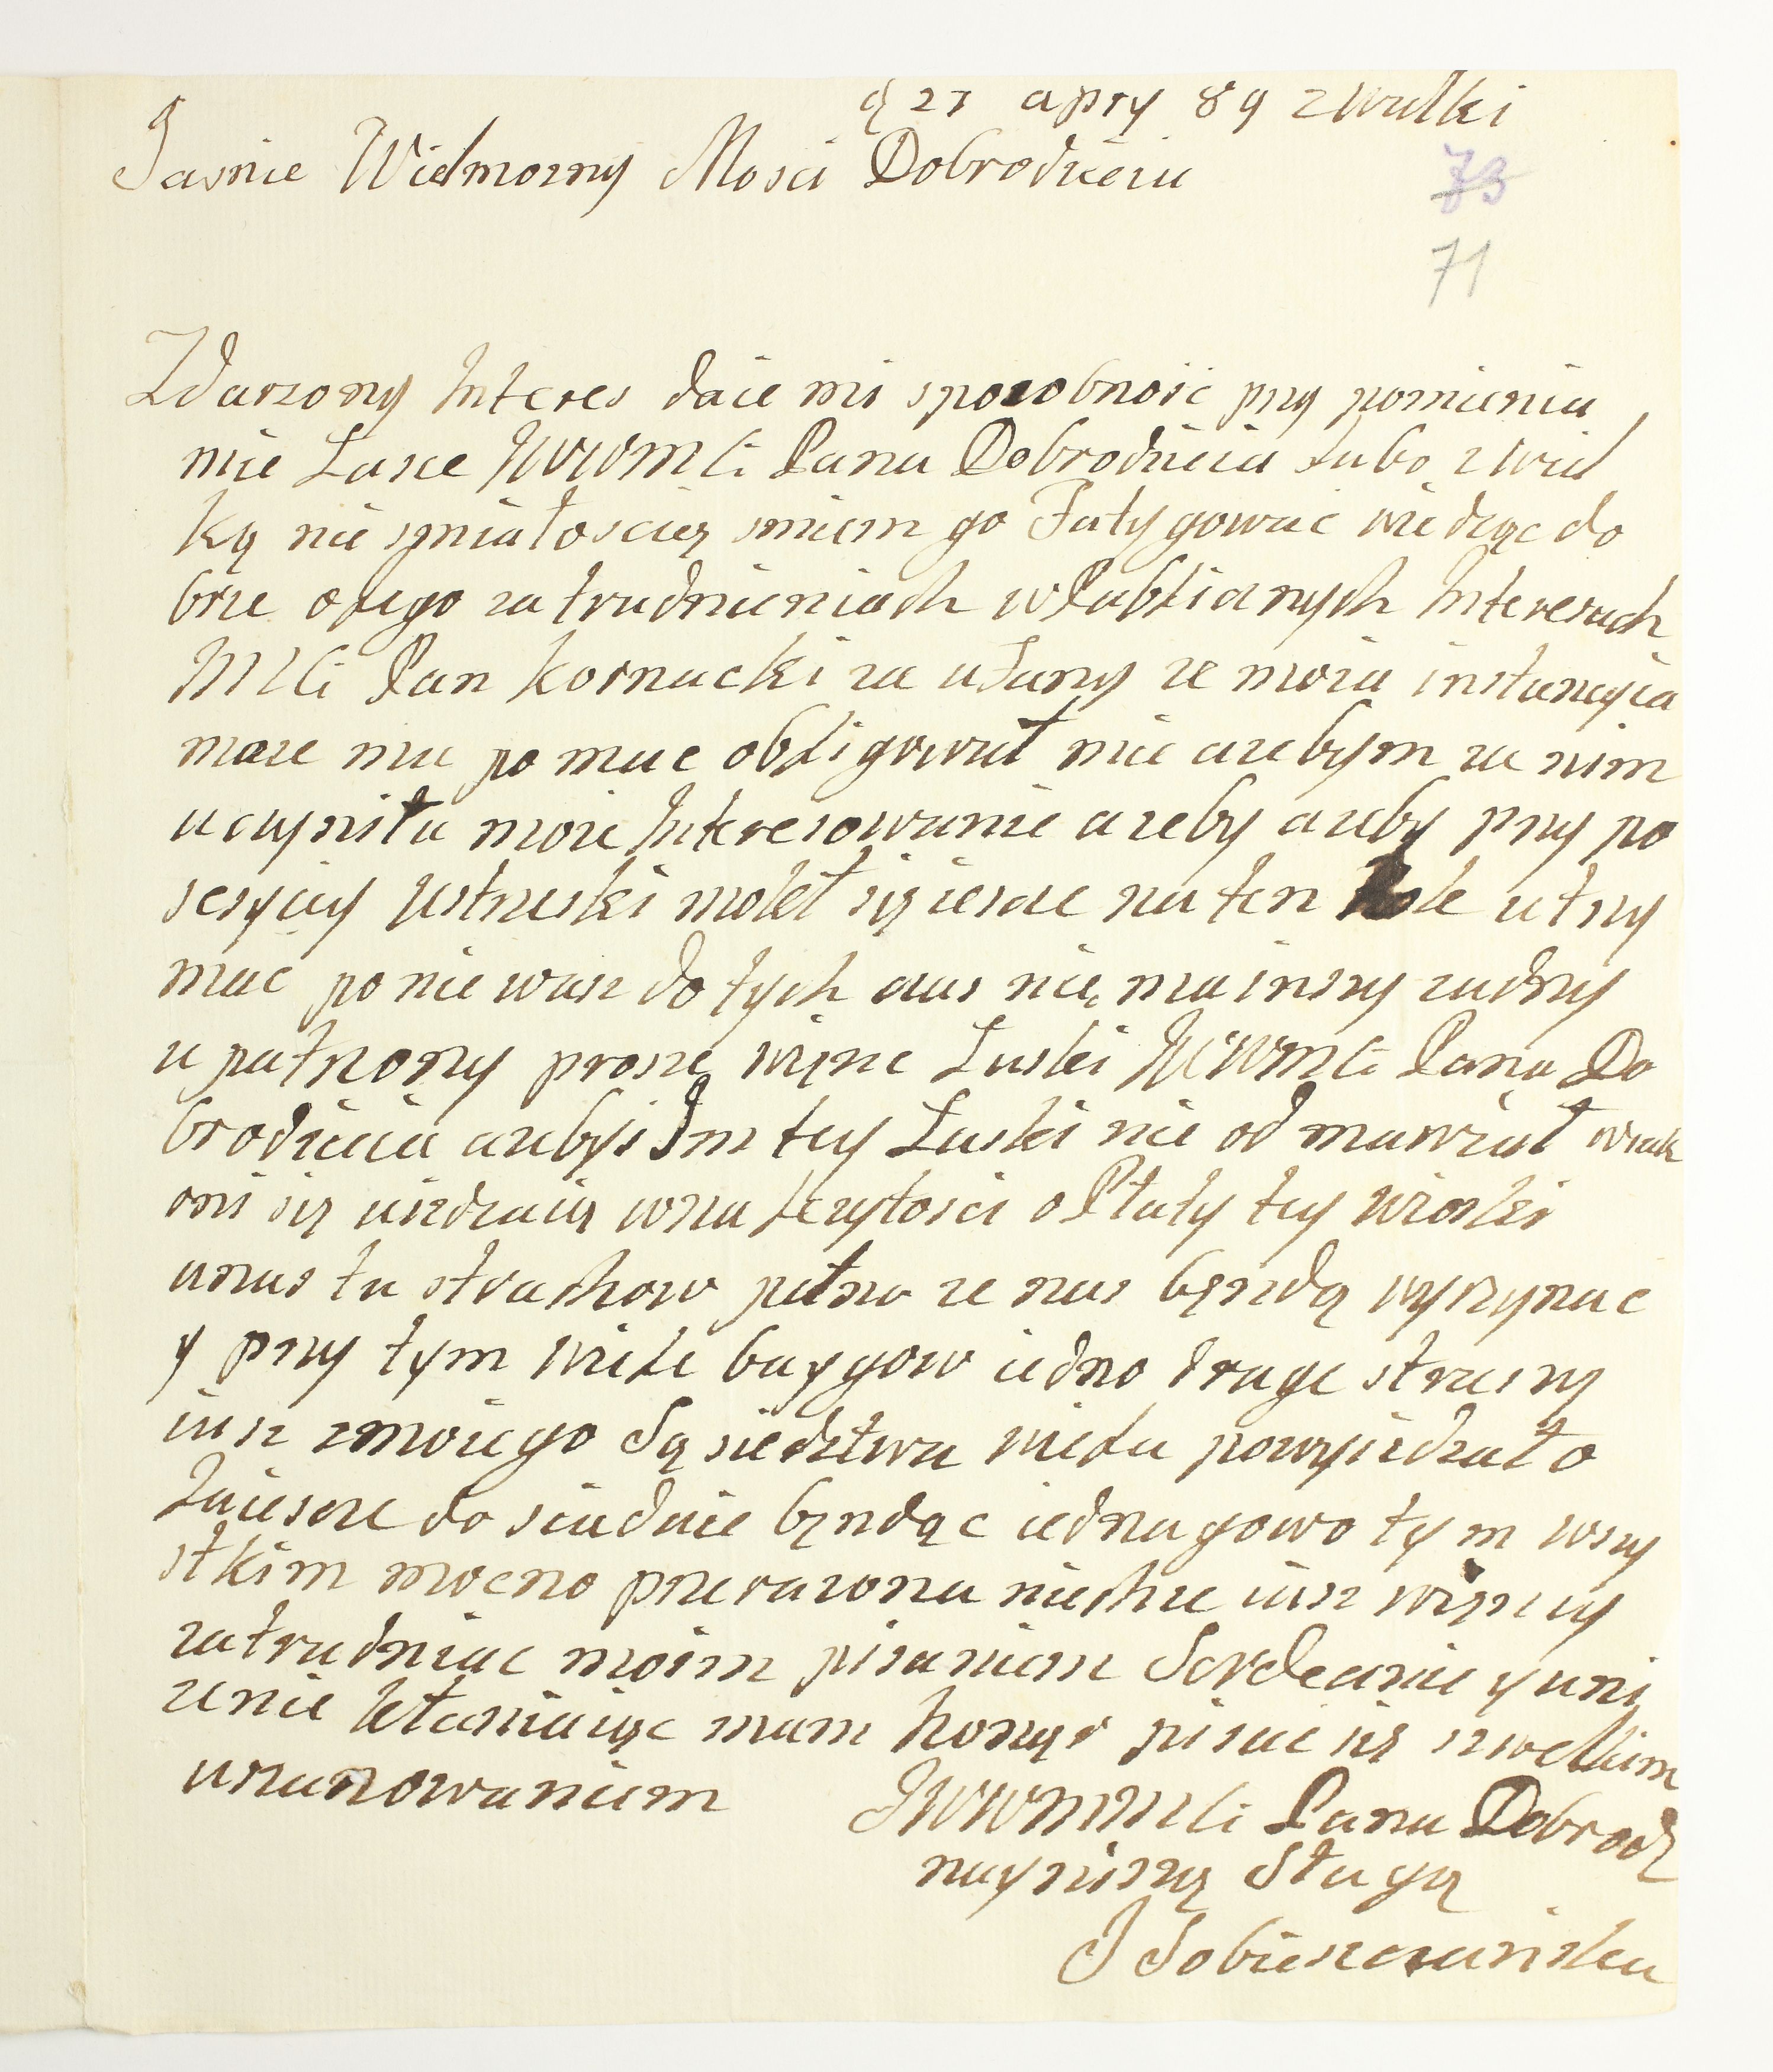 d 27 apry 89 z Wulki
Jasnie Wielmozny Mosci Dobrodzieiu
73
71
Zdarzony Interes daie mi sposobnosc przy pomienia
nie Łasce JWWMCi Pana Dobrodzieia Lubo z wiel
ką nie smiałoscią smiem go Fatygowac wiedząc do
brze o iego zatrudnieniach w Publicznych Interesach
MCi Pan Kornacki za ufany ze moia instancyia
moze mu po muc obligował mie azebym za nim
uczyniła moie Interesowanie azeby azeby przy po
sesyiey Ustrzeski mokł się iesce na ten Rok utrzy
mac po nie wasz do tych czas nie ma inszy zadny
upatrzony prosze więnc Łaski JWWMCi Pana Do
brodzieia azebys Im tey Łaski nie odmawiał wszak
oni się uizdzaią w nalezytosci oPłaty tey Wioski
unas tu strachow pełno ze nas będą wyrzynac
y przy tym wiele baygow iedno drage straszy
iusz z moiego Sąsiedztwa wielu powyiezdzało
Ia iescze do siadnie będąc iednagowo tym wszy
stkim mocno przerazona niechcę iusz więncy
zatrudniac moim pisaniem Serdecznie y uni
zenie kłaniaiąc mam honor pisac się z welkim
uszanowaniem
JWWMMCi Pana Dobrodz
nayniszą Sługą
J Sobieszczanska